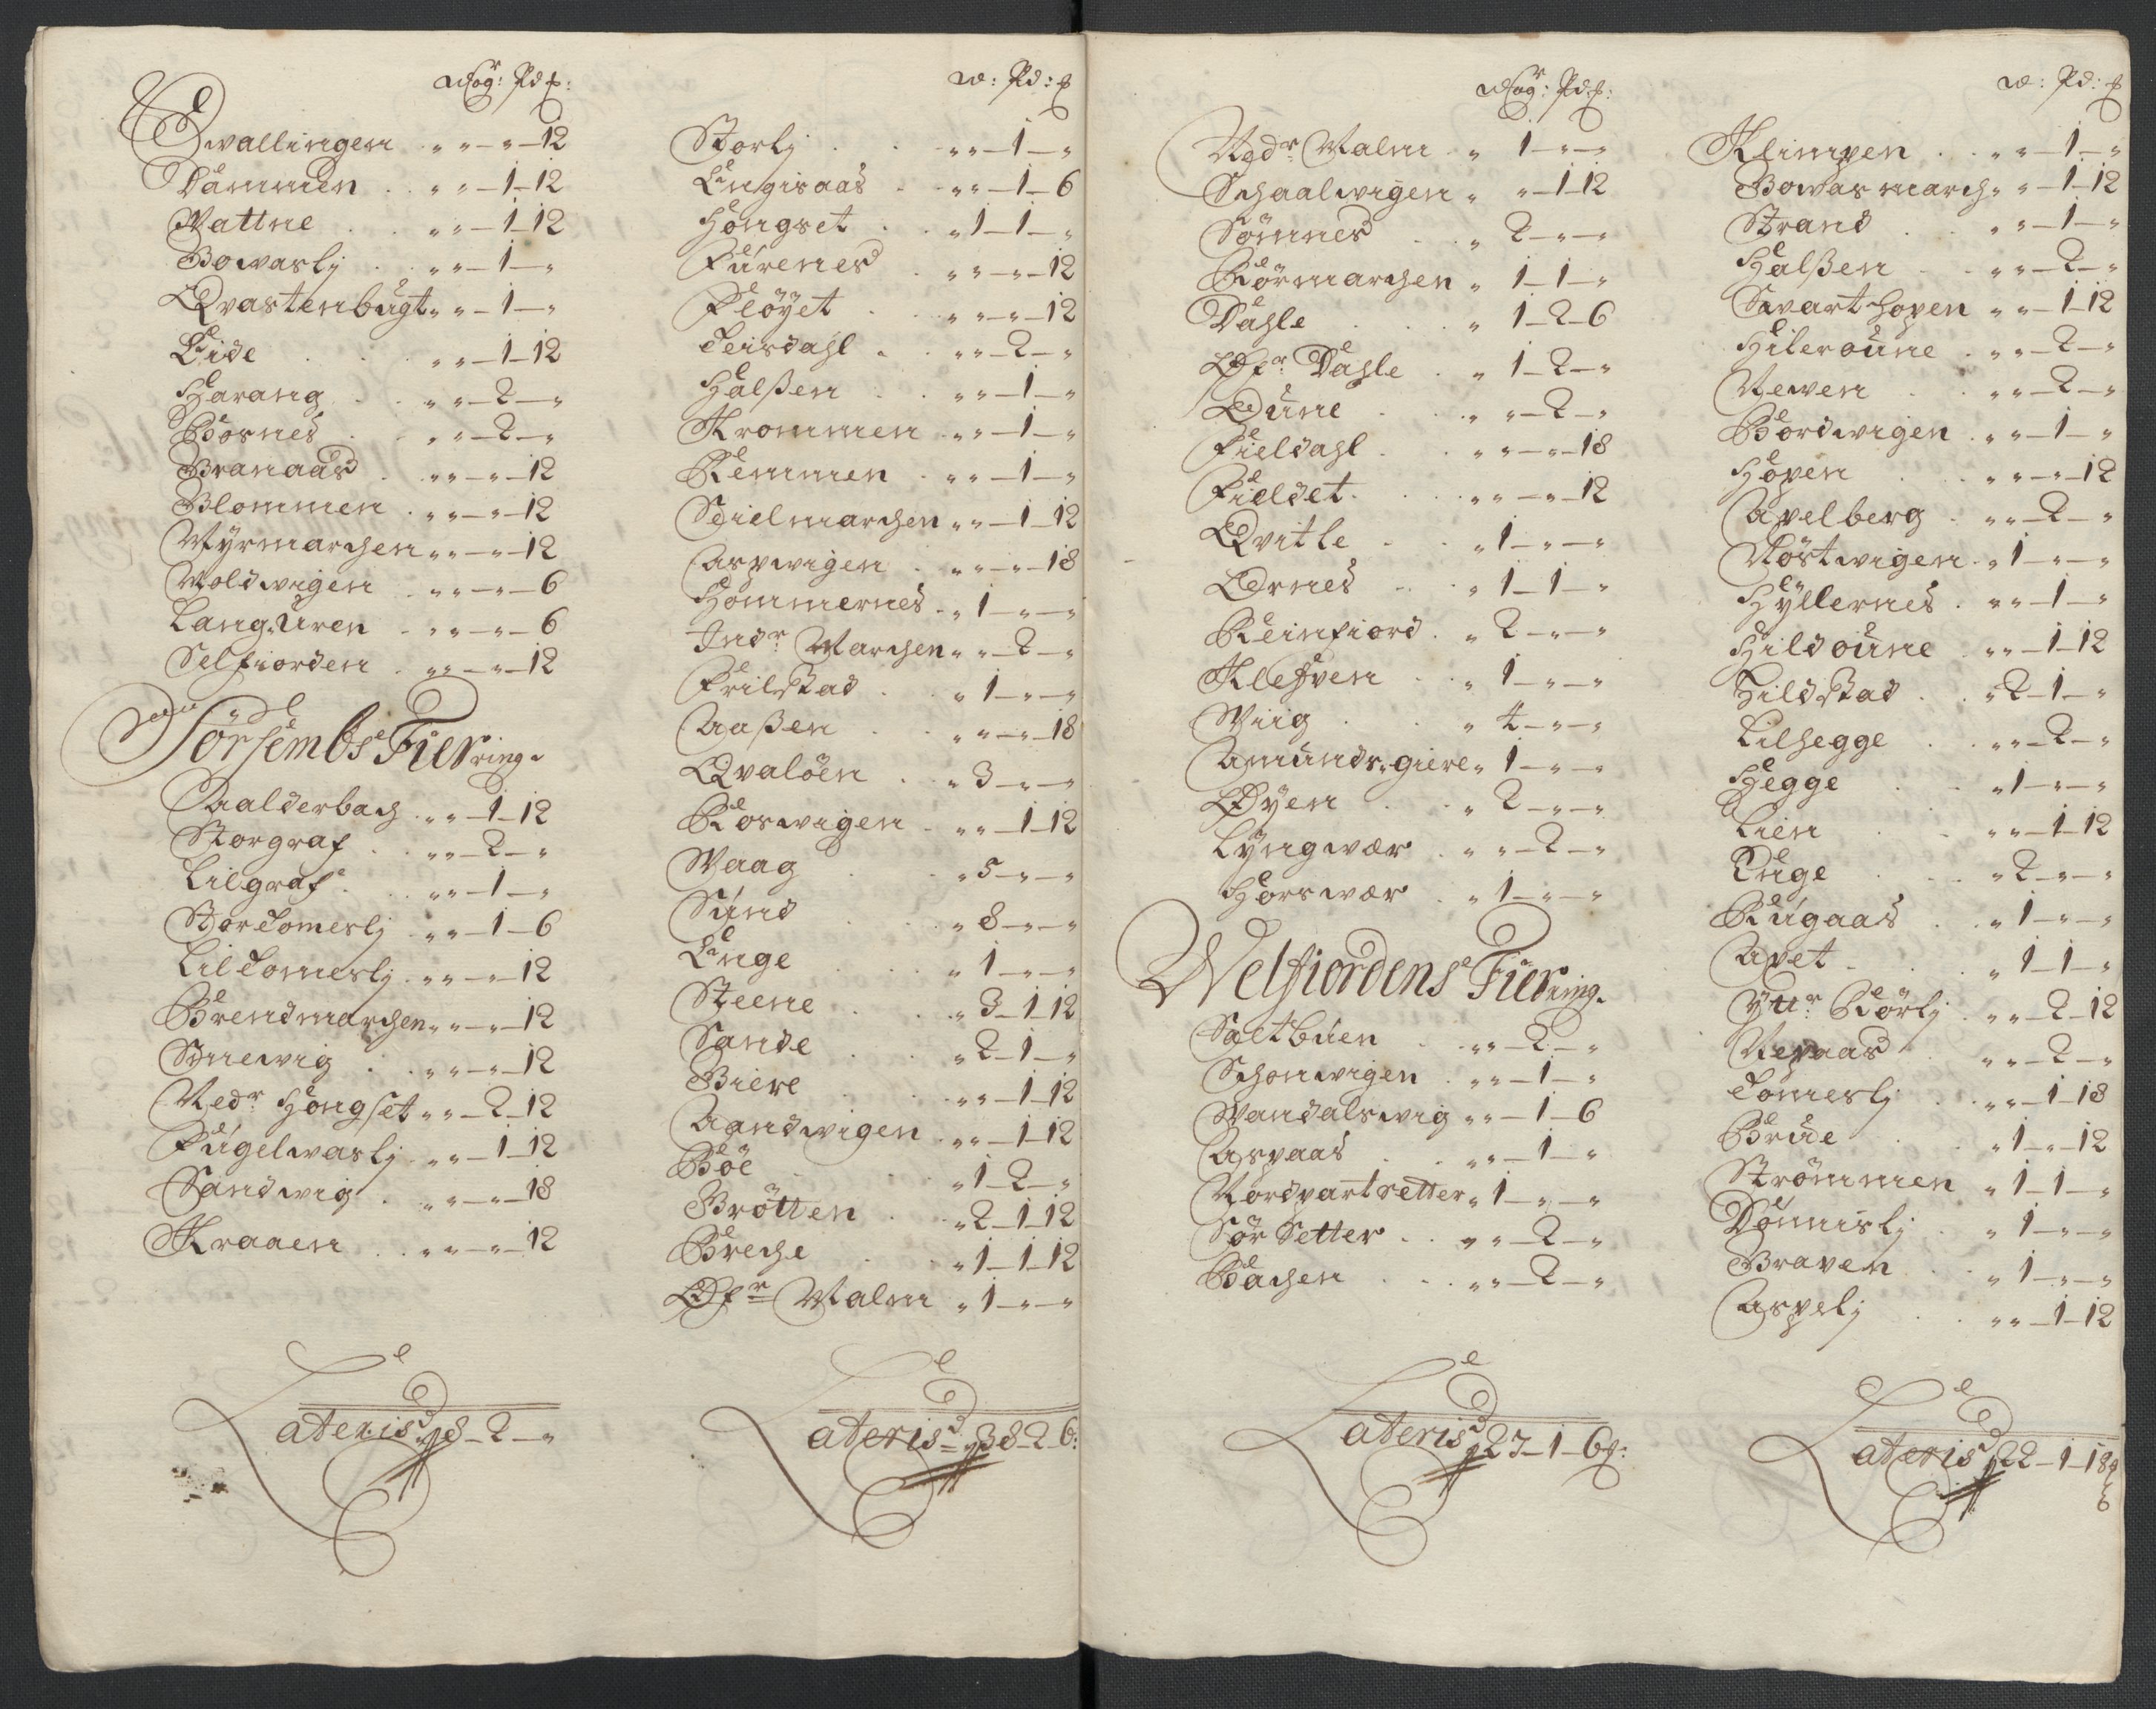 Woger: Pd ℔:
Qwallingen " " - " - 12
Dammen . . " " - 1 - 12
Vattne . . " " - 1 - 12
Bowaslj . . " " - 1 - "
Qvastenbugt " " - 1 - "
Eide . . " " - 1 - 12
Harang . . " " - 2 - "
Bosnes . . " " - 2 - "
Branaas . . " " - " - 12
Blommen . " " - " - 12
Myrmarchen " " - " - 12
Woldwigen . " " - " - 6
Lang Uren . " " - " - 6
Selfiorden . " " - " - 12
Sörsembs Fierring.
Aalderbach . " " - 1 - 12
Storgraf . . " " - 2 - "
Lilgraf . . " " - 1 - "
Stortomeslj . " " - 1 - 6
Liltomeslj . " " - " - 12
Brendmarchen " " - " - 12
Snewig . . " " - " - 12
Nedr Hongset " " - 2 - 12
Fugelwaslj . " " - 1 - 12
Sandwig . " " - " - 18
Kraaen . . " " - " - 12
Lateris 18 - 2 - "
w: Pd: ℔
Storlj . . " " - 1 - "
Engisaas . " " - 1 - 6
Hongset . . " 1 - 1 - "
Furenes . " " - " - 12
Fløyet . . " " - " - 12
Teisdahl . " " - 2 - "
Halsen . . " " - 1 - "
Krommen . " " - 1 - "
Remmen . " " - 1 - "
Schielmarchen " " - 1 - 12
Aspwigen . " " - " - 18
Hommernes . " 1 - " - "
Indr Marchen " " - 2 - "
Frilstad . . " 1 - " - "
Aaßen . . " " - " - 18
Qvaløen . . " 3 - " - "
Roswigen . " " - 1 - 12
Waag . . " 5 - " - "
Sund . . " 8 - " - "
Enge . . " 1 - " - "
Steene . . " 3 - 1 - 12
Sande . . " 2 - 1 - "
Biere . . " " - 1 - 12
Aandwigen . " " - 1 - 12
Böe . . " 1 - 2 - "
Brötten . . " 2 - 1 - 12
Breche . . " 1 - 1 - 12
Øfr Malm " 1 - " - "
Lateris 38 - 2 - 6:
Woger: Pd: ℔:
Nedr Malm . " 1 - " - "
Schaalwigen " " - 1 - 12
Sömnes . . " 2 - " - "
Rörmarchen " 1 - 1 - "
Dahle . . " 1 - 2 - 6
Øfr Dahle . " 1 - 2 - "
Dune . . " " - 2 - "
Fieldahl . . " " - " - 18
Fieldet . . " " - " - 12
Qvitle . . " 1 - " - "
Ornes . . " 1 - 1 - "
Reinfiord . " 2 - " - "
Klefven . . " 1 - " - "
Wiig . . " 4 - " - "
Amunds giere " 1 - " - "
Øyen . . " 2 - " - "
Lyngwær . " " - 2 - "
Horswær . " 1 - " - "
Welfiordens Fierring.
Saltbuen . " " - 2 - "
Schonwigen . " " - 1 - "
Wandalswig " " - 1 - 6
Aspaas . . " " - 1 - "
Nordpart setter " 1 - " - "
Sör Setter . . " " - 2 - "
Bachen . . " " - 2 - "
Lateris 27 - 1 - 6 ℔:
w: Pd: ℔
Klimpen . . " " - 1 - "
Bowas march " " - 1 - 12
Strand . . " " - 1 - "
Halßen . . " " - 2 - "
Swart Hopen " " - 1 - 12
Hileroune . " " - 2 - "
Newen . . " " - 2 - "
Bordwigen . " " - 1 - "
Hopen . . " " - " - 12
Apelberg . " " - 2 - "
Nöstwigen . " 1 - " - "
Hyllernes . " " - 1 - "
Hildoune . " " - 1 - 12
Tildstad . . " 2 - 1 - "
Lilhegge . " " - 2 - "
Hegge . . " 1 - " - "
Lien . . " " - 1 - 12
Tuge . . " 2 - " - "
Rugaas . . " 1 - " - "
Apet . . " 1 - 1 - "
Yttr Rörlj . " " - 2 - 12
Nepaas . " " - 2 - "
Tomeslj . " " - 1 - 18
Brude . . " 1 - " - 12
Strömmen " 1 - 1 - "
Dönnislj . " 1 - " - "
Braven . . " 1 - " - "
Aspelj . . " " - 1 - 12
Lateris 22 - 1 - 18 ℔